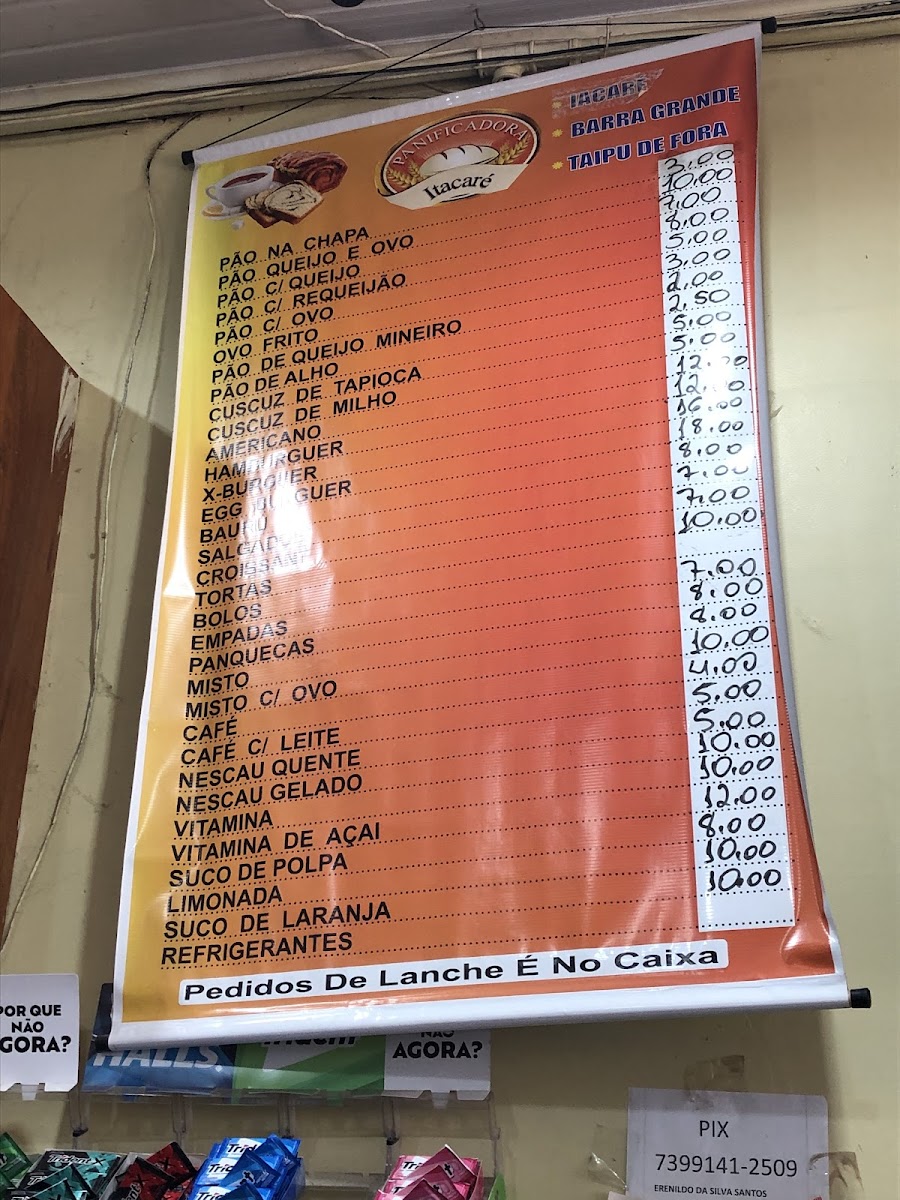 PANIFICADORA
Itacaré
BARRA GRANDE
TAIPU DE FORA
PÃO NA CHAPA 3.00
PÃO QUEIJO E OVO 10.00
PÃO C/ QUEIJO 7.00
PÃO C/ REQUEIJÃO 8.00
PÃO C/ OVO 5.00
OVO FRITO 3.00
PÃO DE QUEIJO MINEIRO 2.00
PÃO DE ALHO 2.50
CUSCUZ DE TAPIOCA 5.00
CUSCUZ DE MILHO 5.00
AMERICANO 12.00
HAMBURGUER 12.00
X-BURGUER 16.00
EGG BURGUER 18.00
BAURU 8.00
SALGADOS 7.00
CROISSANT 7.00
TORTAS 10.00
BOLOS
EMPADAS 7.00
PANQUECAS 8.00
MISTO 8.00
MISTO C/ OVO 10.00
CAFÉ 4.00
CAFÉ C/ LEITE 5.00
NESCAU QUENTE 5.00
NESCAU GELADO 10.00
VITAMINA 10.00
VITAMINA DE AÇAI 12.00
SUCO DE POLPA 8.00
LIMONADA 10.00
SUCO DE LARANJA 10.00
REFRIGERANTES
Pedidos De Lanche É No Caixa
POR QUE
NÃO
AGORA?
HALLS
Trident
NÃO
AGORA?
PIX
7399141-2509
ERENILDO DA SILVA SANTOS
Trident
Trident